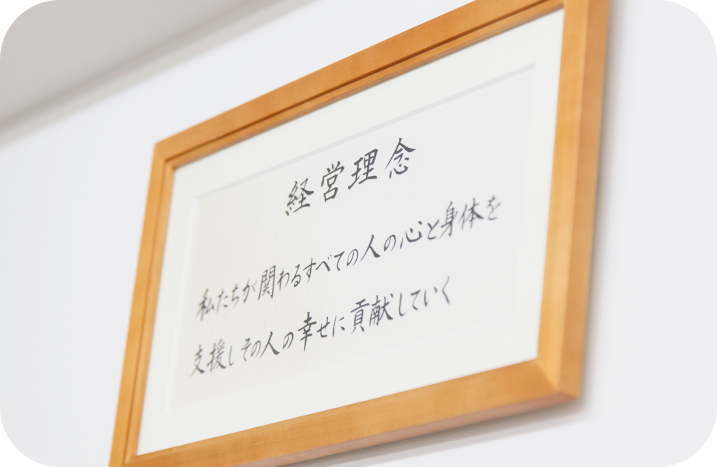 経営理念
私たちが関わるすべての人の心と身体を
支援しその人の幸せに貢献していく